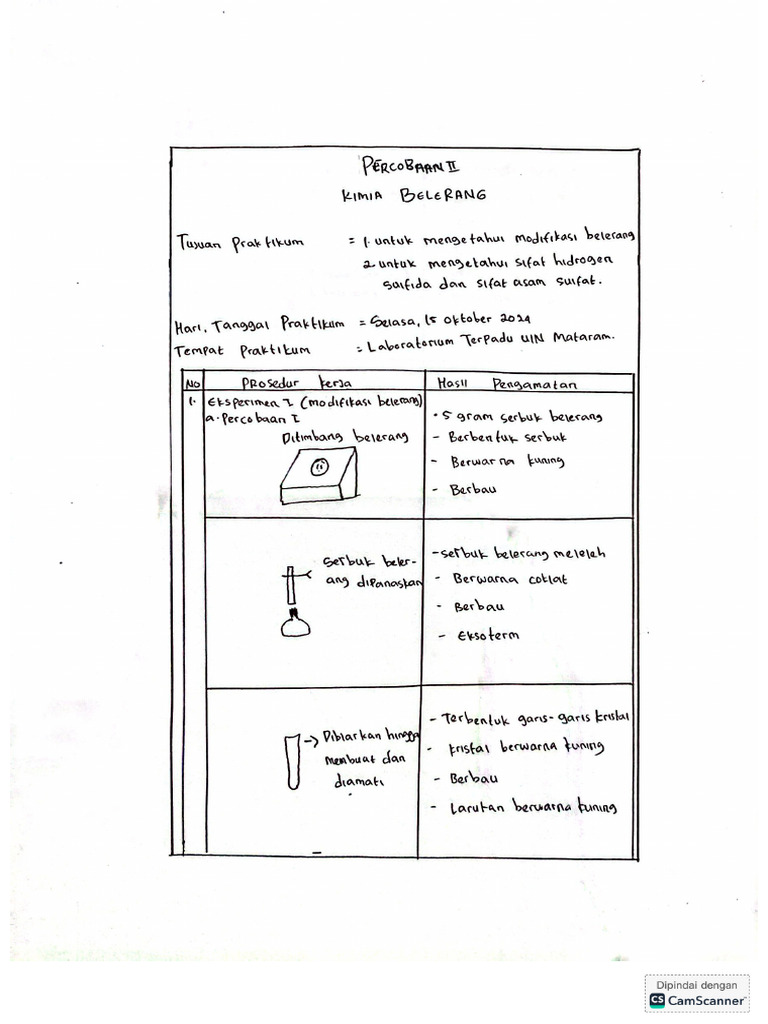 PERCOBAAN II
KIMIA BELERANG
Tujuan Praktikum = 1. untuk mengetahui modifikasi belerang
2. untuk mengetahui sifat hidrogen
sulfida dan sifat asam sulfat.
Hari, Tanggal Praktikum = Selasa, 15 oktober 2024
Tempat Praktikum = Laboratorium Terpadu UIN Mataram.
No Prosedur kerja Hasil Pengamatan
1. Eksperimen I (modifikasi belerang)
a. Percobaan I
Ditimbang belerang
• 5 gram serbuk belerang
- Berbentuk serbuk
- Berwarna kuning
- Berbau
serbuk beler-
ang dipanaskan
- serbuk belerang meleleh
- Berwarna coklat
- Berbau
- Eksoterm
-> Dibiarkan hingga
membuat dan
diamati
- Terbentuk garis-garis kristal
- kristal berwarna kuning
- Berbau
- Larutan berwarna kuning
Dipindai dengan
CS CamScanner